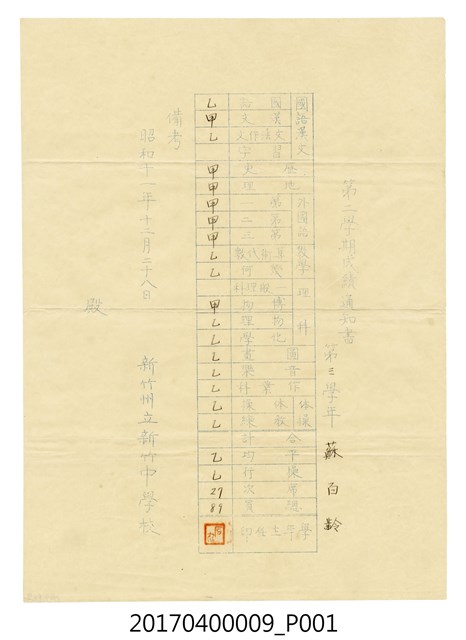 第二學期成績通知書
第三學年 蘇百齡
國語漢文 國語 乙
漢文 甲
文法作文 乙
習字
歷史 甲
地理 甲
外國語 第一 甲
第二 甲
第三 甲
數學 算術代數 乙
幾何 乙
理科 一般理科
博物 甲
物理 乙
化學 乙
圖畫 乙
音樂 乙
作業科 乙
體操 體操 乙
教練 乙
合計
平均 乙
操行 乙
席次 27
總員 89
學年主任印
備考
昭和十一年十二月二十八日
新竹州立新竹中學校
殿
20170400009_P001